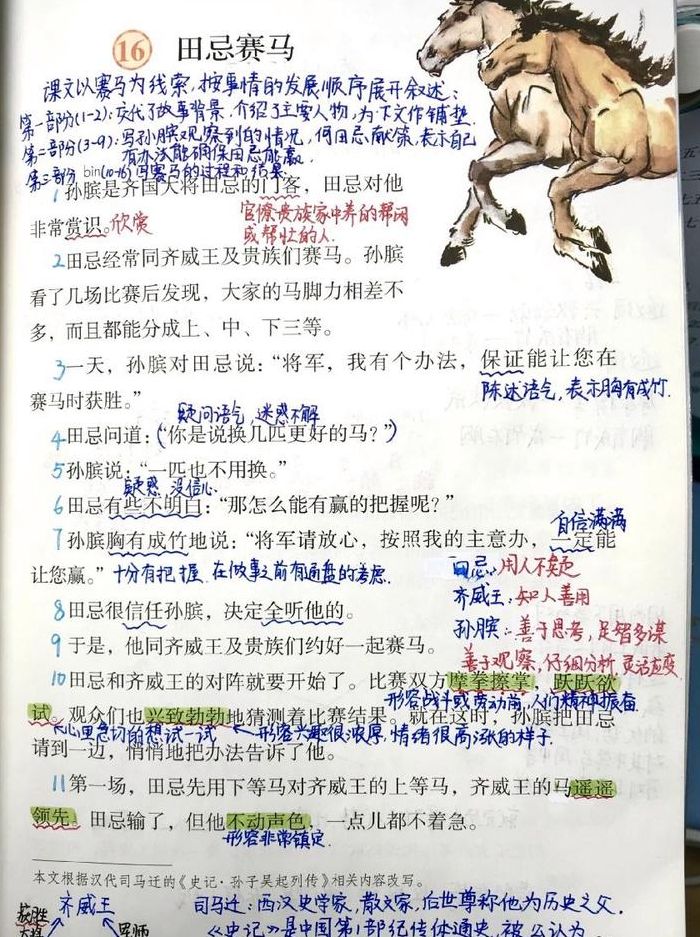 16 田忌赛马
课文以赛马为线索，按事情的发展顺序展开叙述：
第一部分(1-2)：交代了故事背景，介绍了主要人物，为下文作铺垫.
第二部分(3-9)：写孙膑观察到的情况，向田忌献策，表示自己
有办法能确保田忌能赢.
第三部分 bìn(10-16)写赛马的过程和结果.
1孙膑是齐国大将田忌的门客，田忌对他
非常赏识。欣赏
官僚贵族家中养的帮闲
或帮忙的人.
2田忌经常同齐威王及贵族们赛马。孙膑
看了几场比赛后发现，大家的马脚力相差不
多，而且都能分成上、中、下三等。
3一天，孙膑对田忌说：“将军，我有个办法，保证能让您在
赛马时获胜。”
陈述语气，表示胸有成竹.
疑问语气，迷惑不解
4田忌问道：(“你是说换几匹更好的马？”)
5孙膑说：“一匹也不用换。”
疑惑 没信心
6田忌有些不明白：“那怎么能有赢的把握呢？”
自信满满
7孙膑胸有成竹地说：“将军请放心，按照我的主意办，一定能
让您赢。”十分有把握.在做事之前有通盘的考虑.
田忌：用人不疑
齐威王：知人善用
孙膑：善于思考，足智多谋
善于观察，仔细分析 灵活应变
8田忌很信任孙膑，决定全听他的。
9于是，他同齐威王及贵族们约好一起赛马。
10田忌和齐威王的对阵就要开始了。比赛双方摩拳擦掌，跃跃欲
形容战斗或劳动前，人们精神振奋.
试。观众们也兴致勃勃地猜测着比赛结果。就在这时，孙膑把田忌
心里急切的想试一试
形容兴趣很浓厚，情绪很高涨的样子.
请到一边，悄悄地把办法告诉了他。
11第一场，田忌先用下等马对齐威王的上等马，齐威王的马遥遥
领先。田忌输了，但他不动声色，一点儿都不着急。
形容非常镇定.
本文根据汉代司马迁的《史记·孙子吴起列传》相关内容改写。
齐威王
司马迁：西汉史学家，散文家，后世尊称他为历史之父.
获胜
军师
《史记》是中国第1部纪传体通史，被公认为